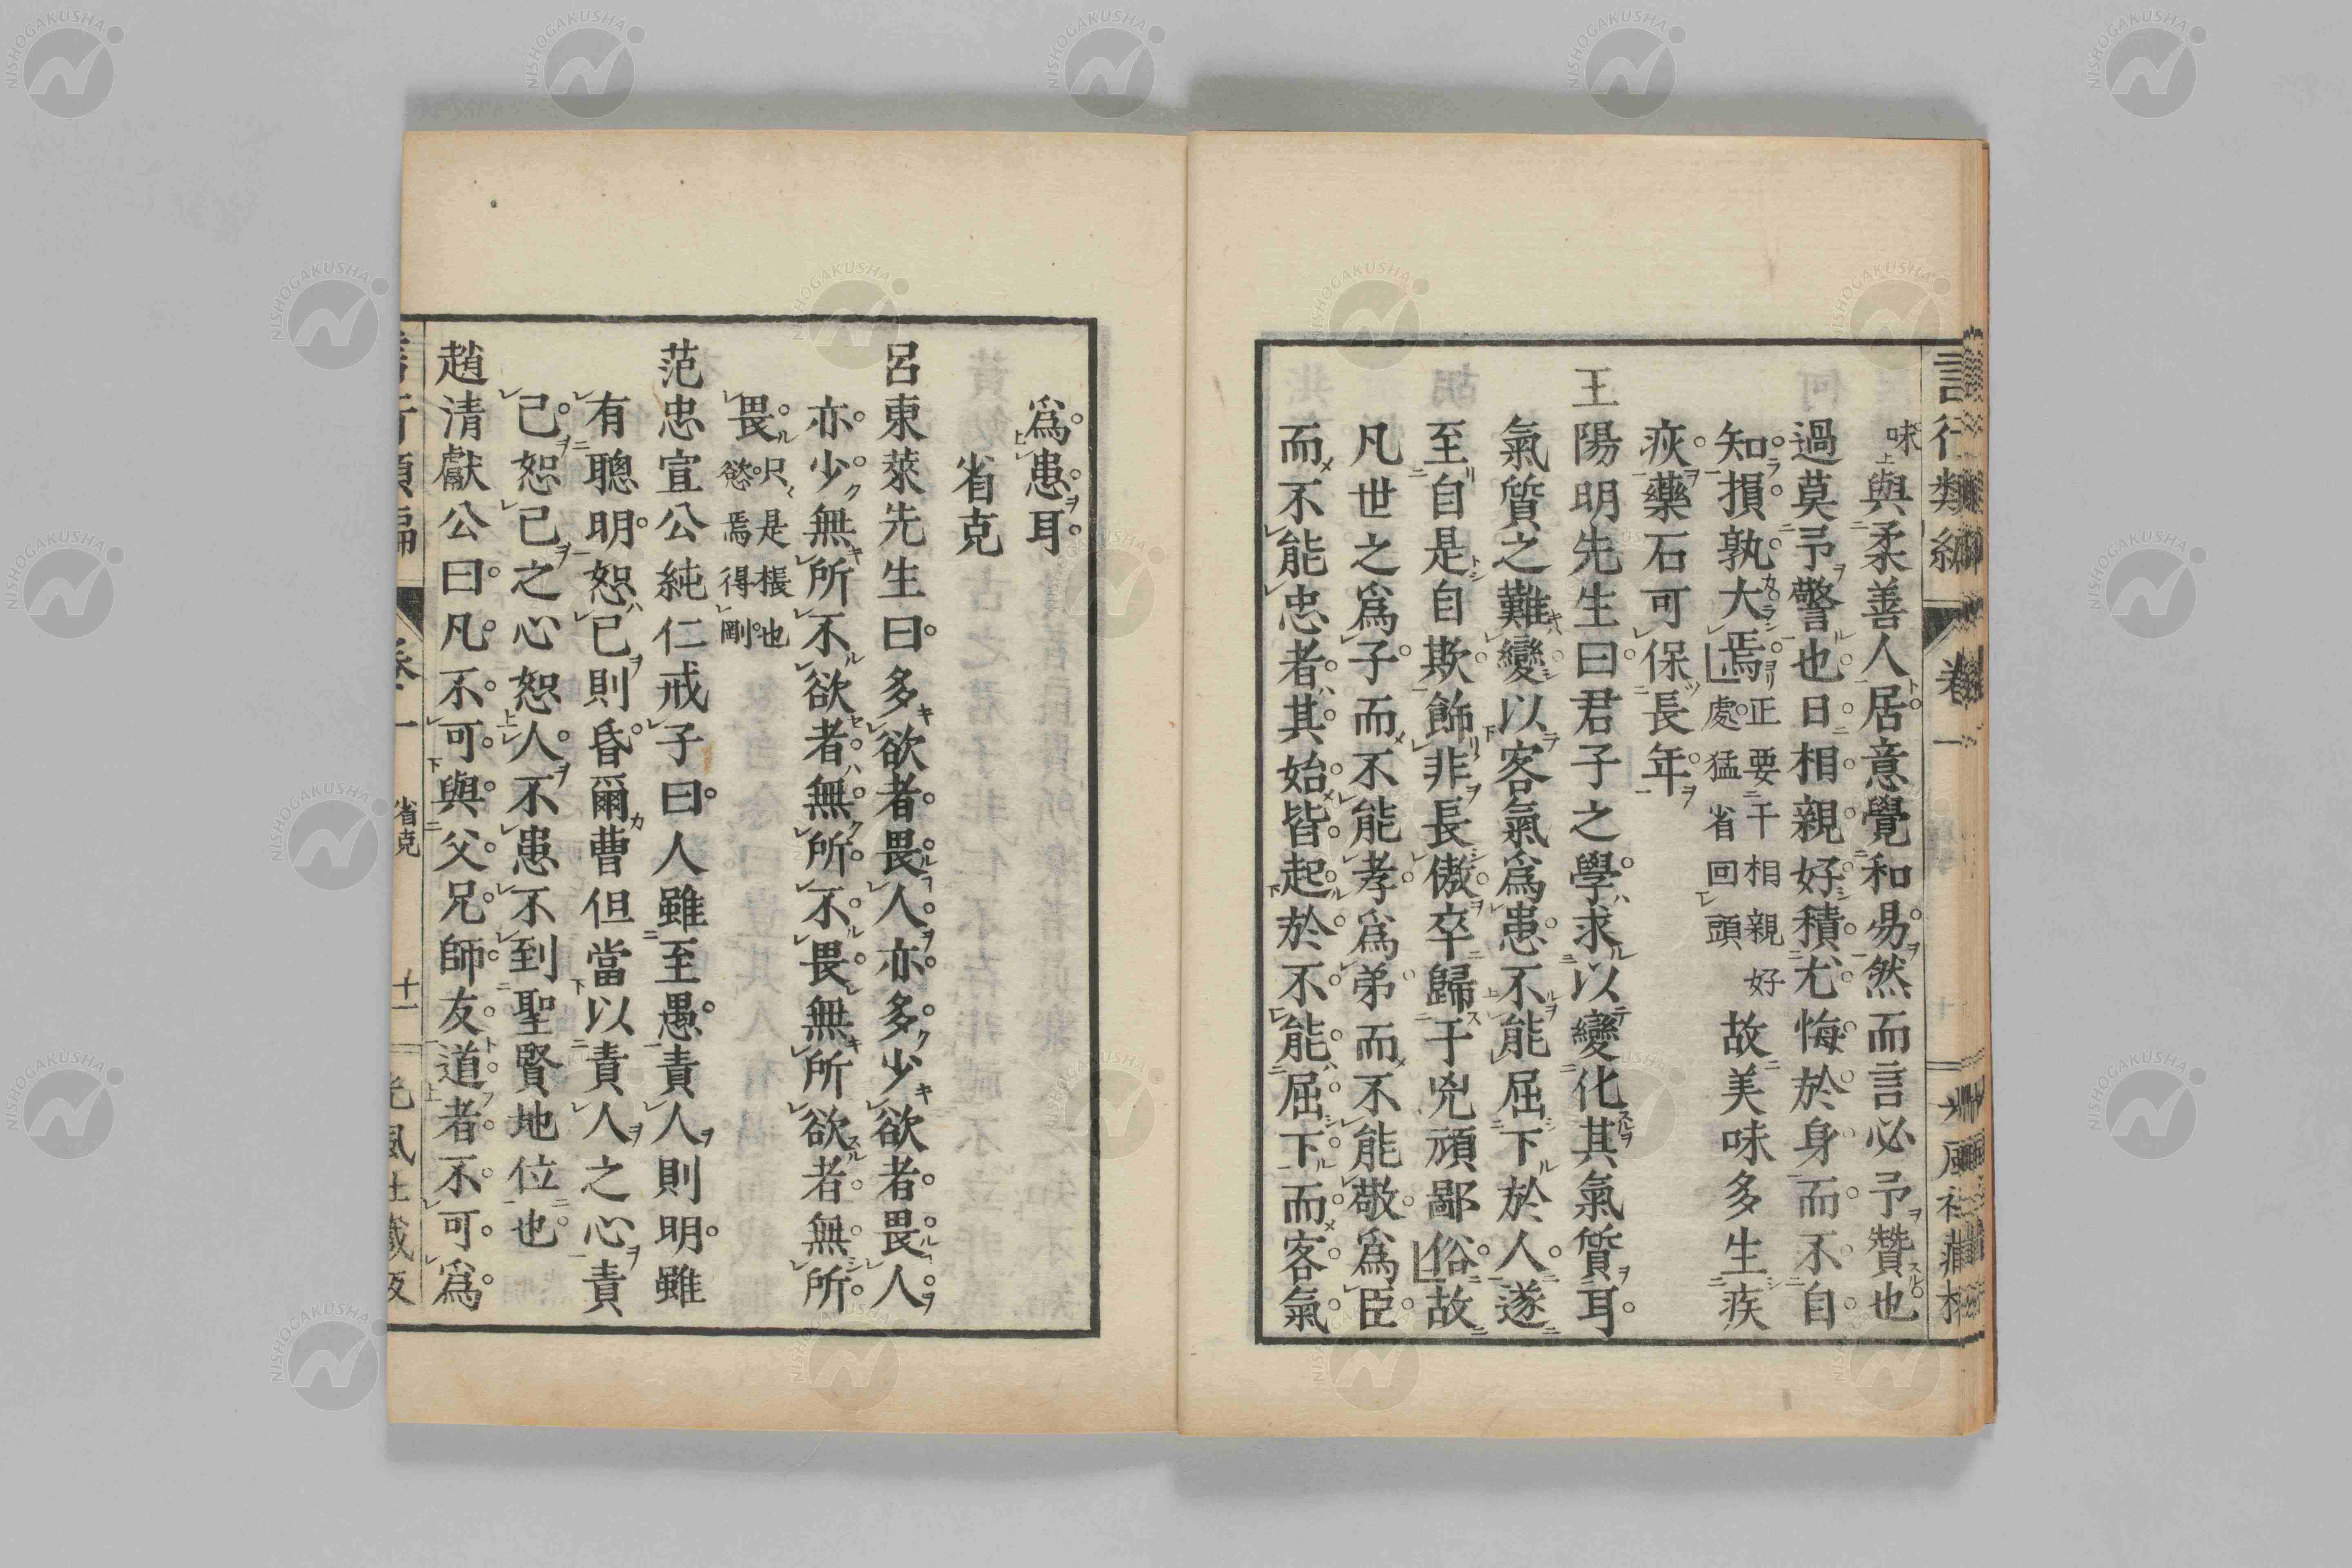 味與柔善人居意覺和易然而言必予贊也
過莫予警也日相親好積尤悔於身而不自
知損孰大焉正要干相親好處猛省回頭故美味多生疾
疢藥石可保長年
王陽明先生曰君子之學求以變化其氣質耳
氣質之難變以客氣爲患不能屈下於人遂
至自是自欺飾非長傲卒歸于兇頑鄙俗故
凡世之爲子而不能孝爲弟而不能敬爲臣
而不能忠者其始皆起於不能屈下而客氣
爲患耳
省克
呂東萊先生曰多欲者畏人亦多少欲者畏人
亦少無所不欲者無所不畏無所欲者無所
畏只是棖也慾焉得剛
范忠宣公純仁戒子曰人雖至愚責人則明雖
有聰明恕已則昏爾曹但當以責人之心責
己恕已之心恕人不患不到聖賢地位也
趙清獻公曰凡不可與父兄師友道者不可爲
省克
十一
NISHOGAKUSHA